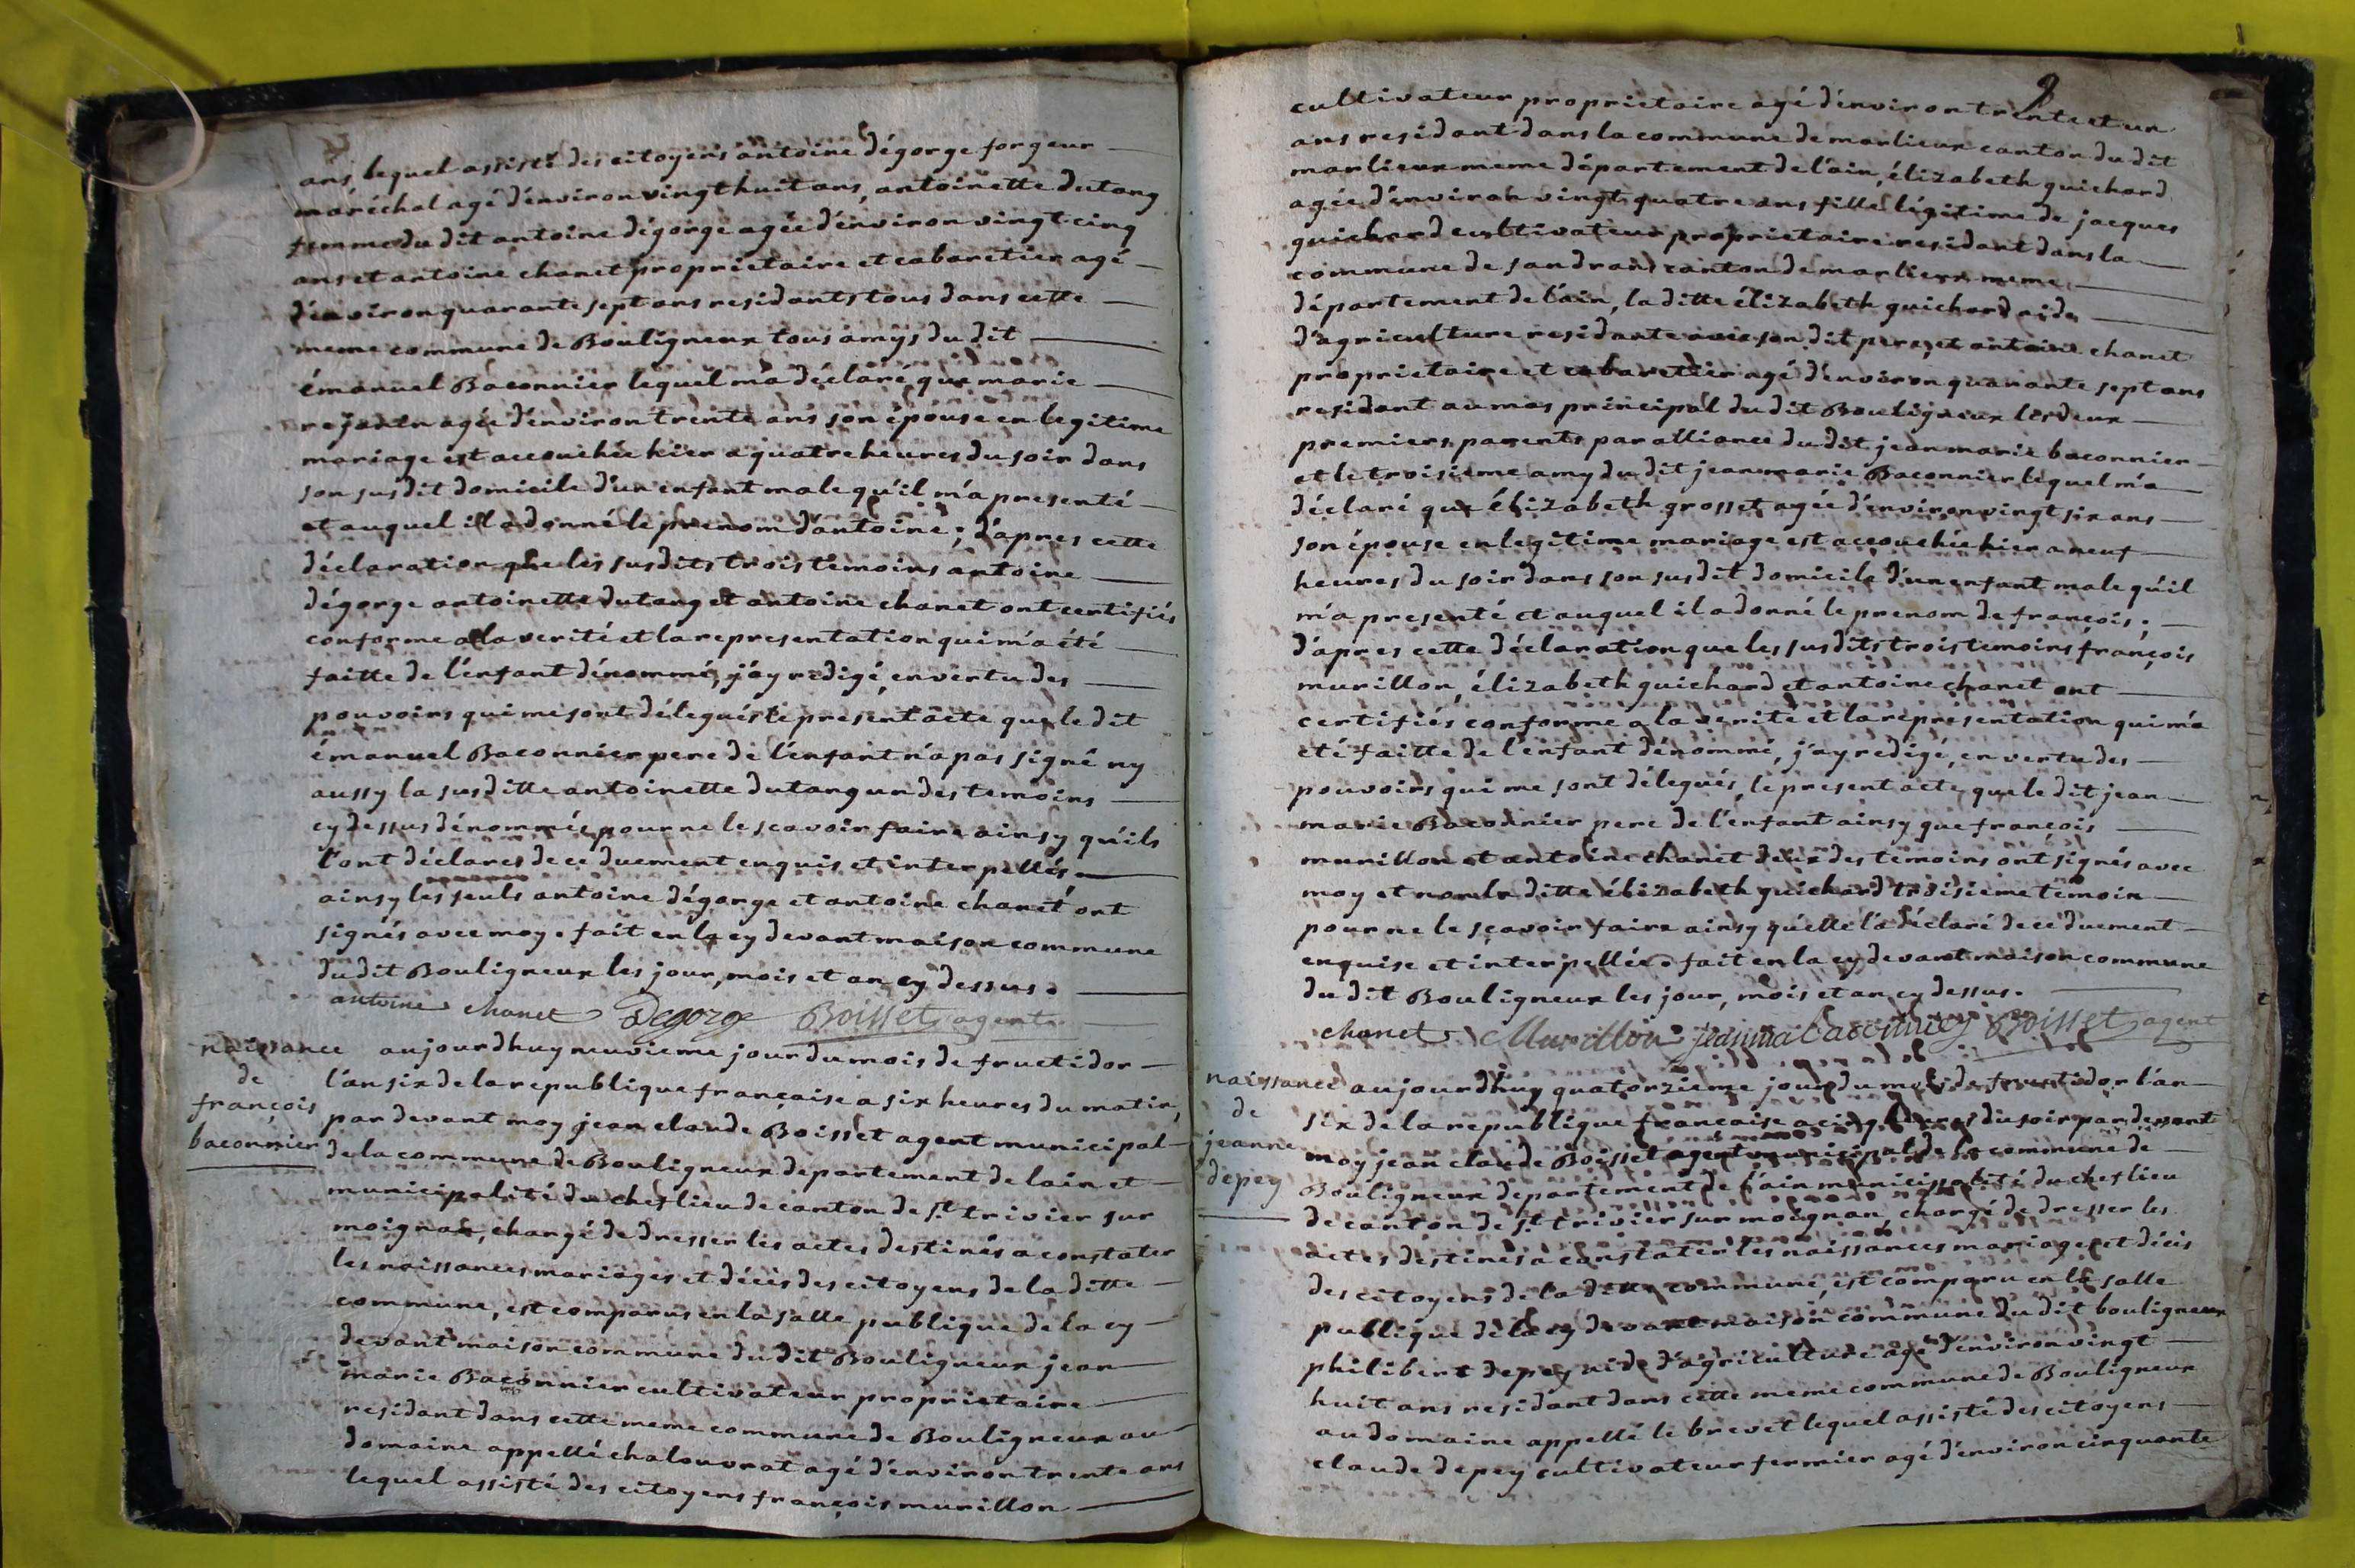 ans, lequel assisté des citoyens antoine dégorge forgeur
maréchal agé d'environ vingt huit ans, antoinette dutang
femme du dit antoine dégorge agée d'environ vingt-cinq
ans et antoine chanet proprietaire et cabaretier agé
d'environ quarante sept ans residants tous dans cette
meme commune de Bouligneux tous amys du dit
émanuel Baconnier lequel m'a déclaré que marie
agée d'environ trente ans son épouse en legitime
mariage est accouchée hier a quatre heures du soir dans
son susdit domicile d'un enfant male qu'il m'a presenté
et auquel il a donné le prenom d'antoine; d'apres cette
déclaration que les susdits trois temoins antoine
dégorge antoinette dutang et antoine chanet ont certifiés
conforme a la verité et la representation qui m'a été
faitte de l'enfant dénommé, j'ay redigé, en vertu des
pouvoirs qui me sont délegués le present acte que le dit
émanuel Baconnier pere de l'enfant n'a pas signé ny
aussy la susditte antoinette dutang un des temoins
cy dessus dénommée, pour ne le scavoir faire ainsy qu'ils
l'ont déclares de ce duement enquis et interpellés.
ainsy les seuls antoine dégorge et antoine chanet ont
signés avec moy. fait en la cy devant maison commune
du dit Bouligneux les jour, mois et an cy dessus.
antoine chanet Degorge Boisset agent
naissance
de
françois
baconnier
aujourdhuy neuvieme jour du mois de fructidor
l'an six de la republique française a six heures du matin,
par devant moy jean claude Boisset agent municipal
de la commune de Bouligneux departement de lain et
municipalité du chef lieu de canton de st trivier sur
moignan, chargé de dresser les actes destinés a constater
les naissances mariages et décès des citoyens de la ditte
commune, est comparus en la salle publique de la cy
devant maison commune du dit Bouligneux jean
marie Baconnier cultivateur proprietaire
residant dans cette meme commune de Bouligneux au
domaine appellé chalouvrat agé d'environ trente ans
lequel assisté des citoyens françois murillon
9
cultivateur proprietaire agé d'environ trente et un
ans residant dans la commune de marlieux canton du dit
marlieux meme département de l'ain, élizabeth guichard
agée d'environ vingt quatre ans fille légitime de jacques
guichard cultivateur proprietaire residant dans la
commune de sandrans canton de marlieux meme
département de l'ain, la ditte élizabeth guichard aide
d'agriculture residante avec son dit pere, et antoine chanet
proprietaire et cabarettier agé d'environ quarante sept ans
residant au mas principal du dit Bouligneux les deux
premiers parents par alliance du dit jean marie baconnier
et le troisieme amy du dit jean marie Baconnier lequel m'a
déclaré que élizabeth grosset agée d'environ vingt six ans
son épouse en legitime mariage est accouchée hier a neuf
heures du soir dans son susdit domicile d'un enfant male qu'il
m'a presenté et auquel il a donné le prenom de françois;
d'apres cette déclaration que les susdits trois temoins françois
murillon, élizabeth guichard et antoine chanet ont
certifiés conforme a la verité et la representation qui m'a
été faitte de l'enfant dénommé, j'ay redigé, en vertu des
pouvoirs qui me sont délegués, le present acte que le dit jean
marie Baconnier pere de l'enfant ainsy que françois
murillon et antoine chanet deux des temoins ont signés avec
moy et non la ditte élizabeth guichard troisieme temoin
pour ne le sçavoir faire ainsy qu'elle l'a déclaré de ce duement
enquise et interpellée. fait en la cy devant maison commune
du dit Bouligneux les jour, mois et an cy dessus.
chanet Murillon Boisset agent
naissance
de
jeanne
depey
aujourdhuy quatorzieme jour du mois de fructidor l'an
six de la republique francaise a cinq heures du soir par devant
moy jean claude Boisset agent municipal de la commune de
Bouligneux departement de l'ain municipalité du chef lieu
de canton de st trivier sur moignan, chargé de dresser les
actes destinés a constater les naissances mariages et décès
des citoyens de la ditte commune, est comparu en la salle
publique de la cy devant maison commune du dit bouligneux
philibert depey aide d'agriculture agé d'environ vingt
huit ans residant dans cette meme commune de Bouligneux
au domaine appellé le brevet lequel assisté des citoyens
claude depey cultivateur fermier agé d'environ cinquante